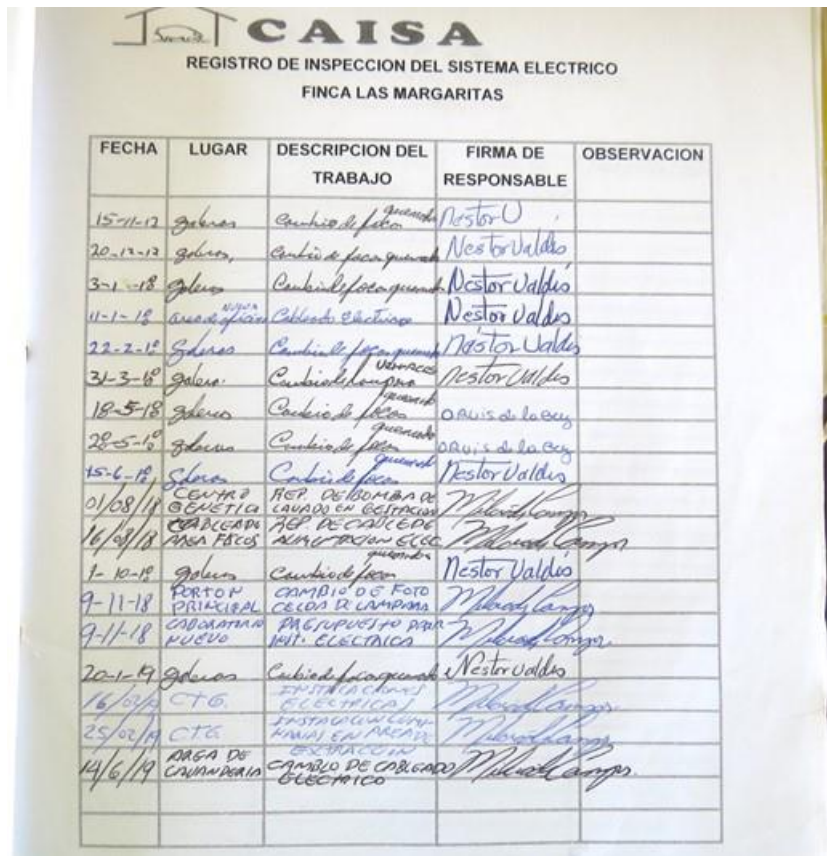 CAISA
REGISTRO DE INSPECCION DEL SISTEMA ELECTRICO
FINCA LAS MARGARITAS
FECHA LUGAR DESCRIPCION DEL TRABAJO FIRMA DE RESPONSABLE OBSERVACION
15-11-17 galeras Cambio de focos quemado Nestor U
20-12-17 galeras, Cambio de focos quemado Nestor Valdés
3-1-18 galeras Cambio de focos quemado Nestor Valdés
11-1-18 area de oficina nueva Cableado Electrico Nestor Valdés
22-2-18 Galeras Cambio de focos quemado Nestor Valdés
31-3-18 galera. Cambio de lampara Nestor Valdés
18-5-18 galeras Cambio de focos quemado ORuis de la Cruz
28-5-18 galeras Cambio de focos quemado ORuis de la Cruz
15-6-18 Galeras Cambio de focos quemado Nestor Valdés
01/08/18 CENTRO GENETICA REP. DE BOMBA DE LAVADO EN GESTACION
16/08/18 CABLEADO AREA FOCOS REP. DE CABLE DE ALIMENTACION ELEC
1-10-18 galeras Cambio de focos quemados Nestor Valdés
9-11-18 PORTON PRINCIPAL CAMBIO DE FOTO CELDA DE LAMPARA
9-11-18 LABORATORIO NUEVO PRESUPUESTO PARA INST. ELECTRICA
20-1-19 galeras Cambio de focos quemado Nestor Valdés
16/02/19 CTG. INSTALACIONES ELECTRICAS
25/02/19 CTG. INSTALACION EN AREA DE EXTRACCION
14/6/19 AREA DE LAVANDERIA CAMBIO DE CABLEADO ELECTRICO